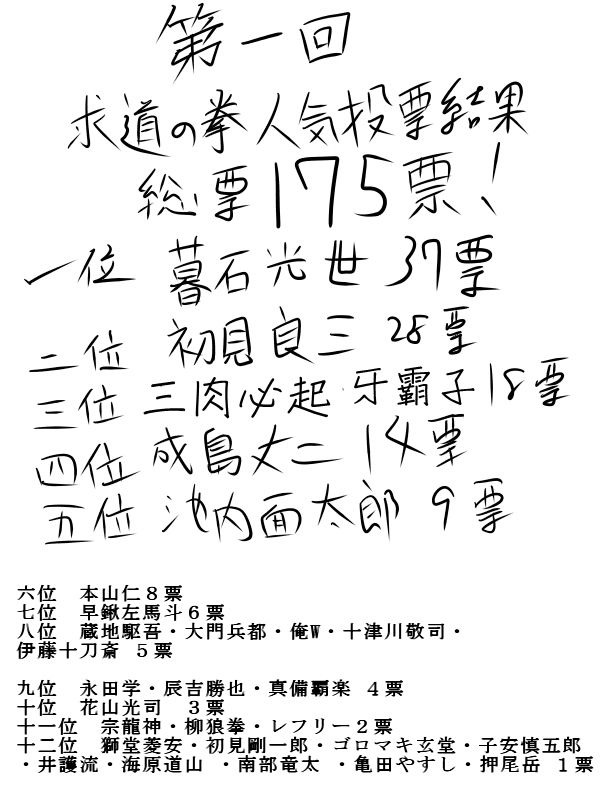 第一回
求道の拳人気投票結果
総票175票!
一位 暮石光世 37票
二位 初見良三 28票
三位 三肉必起・牙覇子18票
四位 成島丈二 14票
五位 池内面太郎 9票
六位 本山仁８票
七位 早鍬左馬斗６票
八位 蔵地駆吾・大門兵都・俺W・十津川敬司・
伊藤十刀斎 ５票
九位 永田学・辰吉勝也・真備覇楽 ４票
十位 花山光司 ３票
十一位 宗龍神・柳狼拳・レフリー２票
十二位 獅堂菱安・初見剛一郎・ゴロマキ玄堂・子安慎五郎
・井護流・海原道山 ・南部竜太 ・亀田やすし・押尾岳 １票